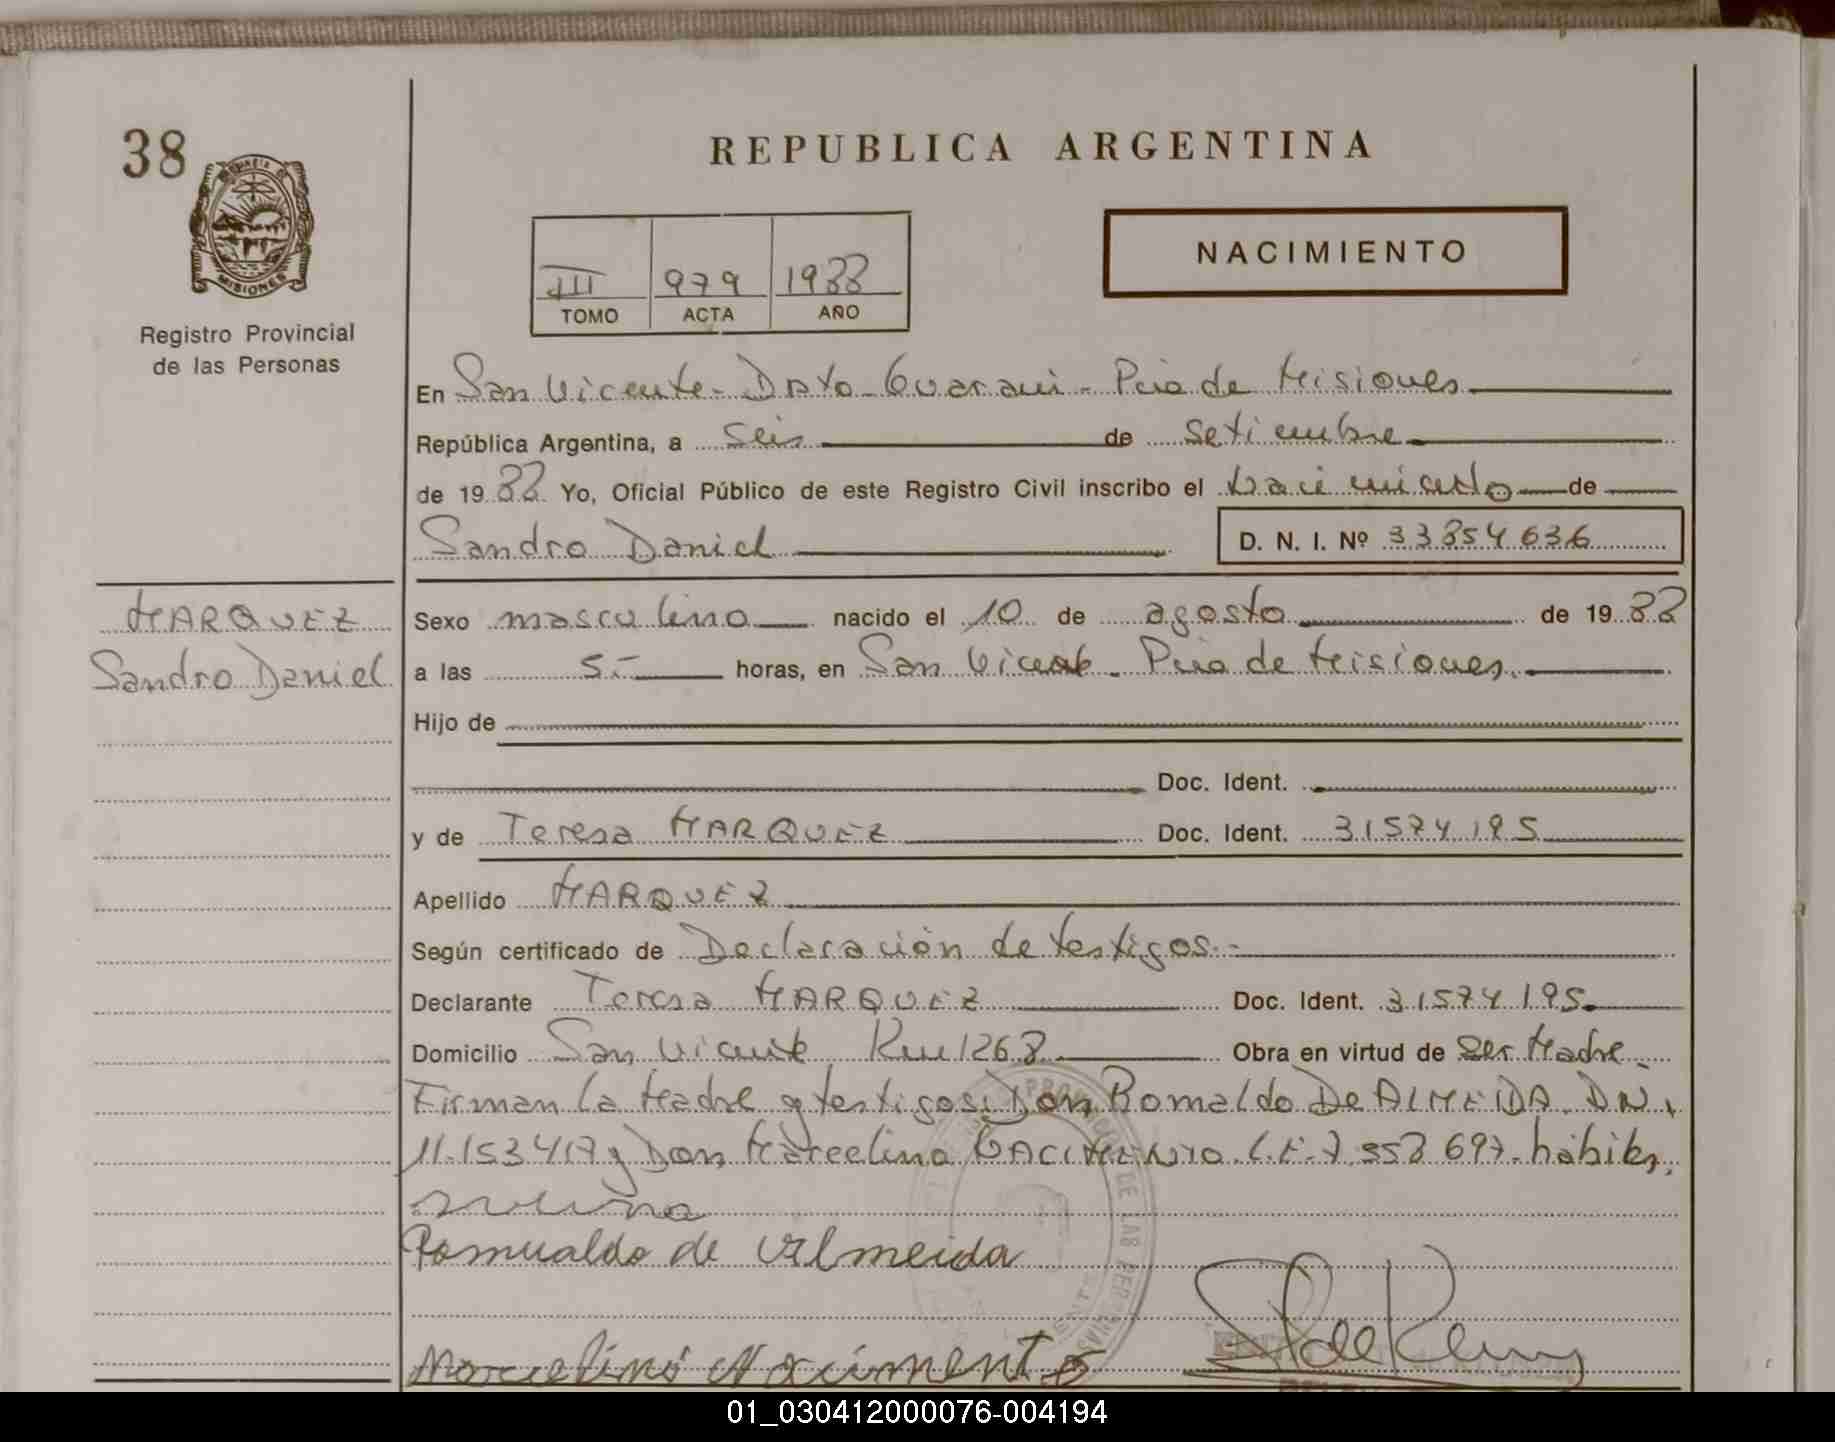 38
REPUBLICA ARGENTINA
PROVINCIA
MISIONES
Registro Provincial
de las Personas
III 979 1988
TOMO ACTA AÑO
NACIMIENTO
En San Vicente - Dpto - Guarani - Pcia de Misiones
República Argentina, a seis de setiembre
de 1988 Yo, Oficial Público de este Registro Civil inscribo el Nacimiento de
Sandro Daniel D. N. I. Nº 33854636
MARQUEZ
Sandro Daniel
Sexo masculino nacido el 10 de agosto de 1988
a las 5.- horas, en San Vicente - Pcia de Misiones.
Hijo de
Doc. Ident.
y de Teresa MARQUEZ Doc. Ident. 31574195
Apellido MARQUEZ
Según certificado de Declaración de testigos.-
Declarante Teresa MARQUEZ Doc. Ident. 31574195.
Domicilio San Vicente Km 1268 Obra en virtud de ser Madre.
Firman la Madre y testigos: Don Romaldo De ALMEIDA. DN.
11.153417 y Don Marcelino NACIMENTO. C.E. 7.558697. habiles.
Romualdo de Almeida
Marcelino Nacimento
DE LAS PERSONAS
01_030412000076-004194